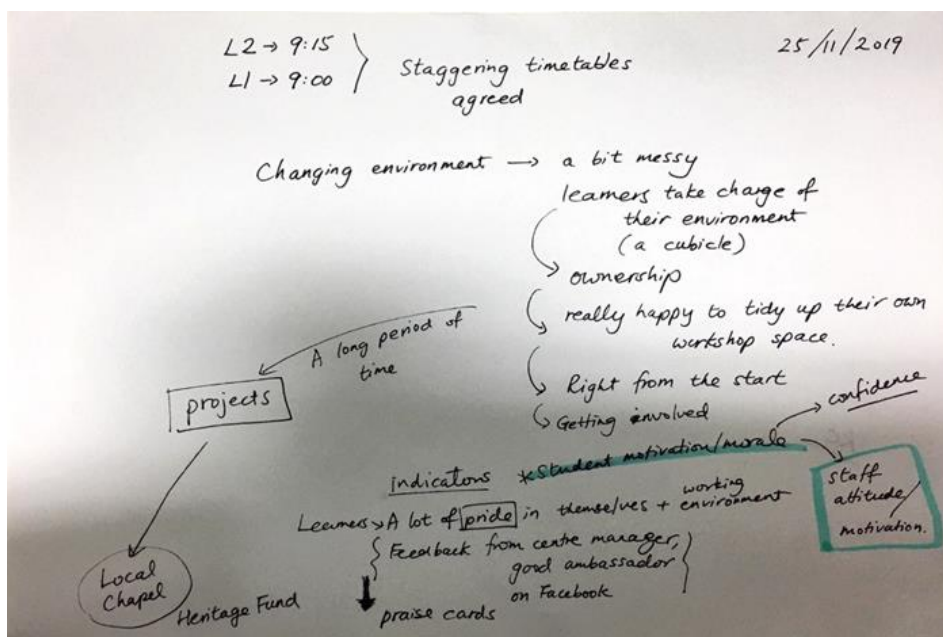 25/11/2019
L2 → 9:15
L1 → 9:00
Staggering timetables
agreed
Changing environment → a bit messy
learners take charge of
their environment
(a cubicle)
ownership
really happy to tidy up their own
workshop space.
Right from the start
Getting involved
A long period of
time
projects
Local
Chapel
Heritage Fund
confidence
*Student motivation/morale
staff
attitude/
motivation.
indicators
Learners → A lot of pride in themselves + working
environment
Feedback from centre manager,
good ambassador
on Facebook
praise cards